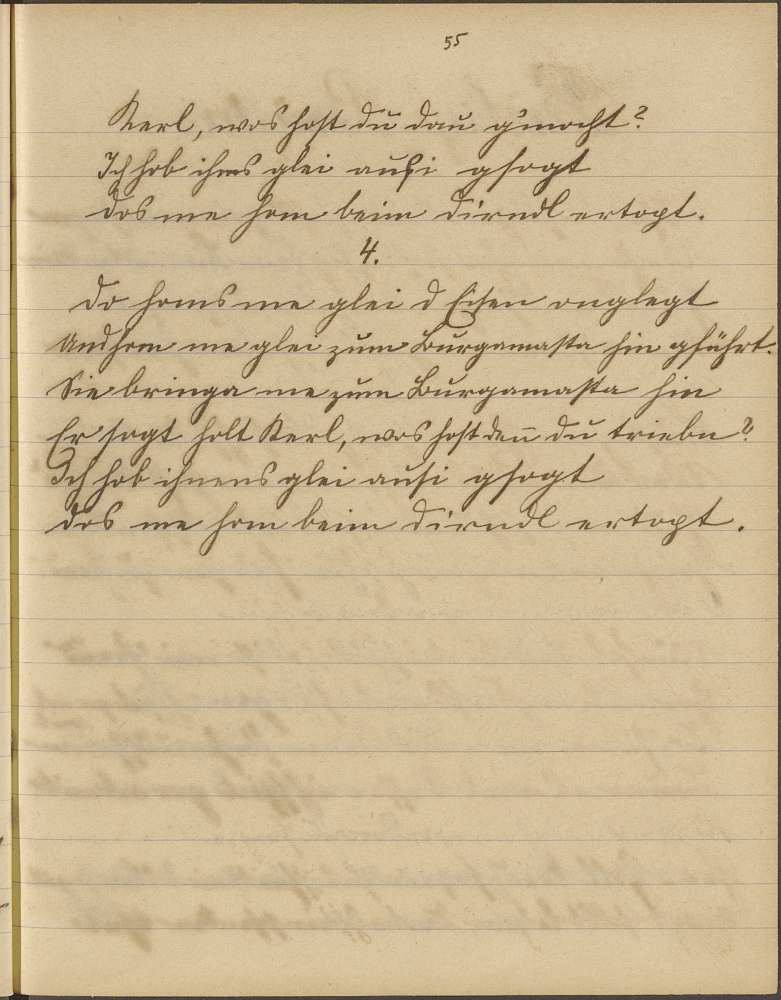 55
Kerl, wos host du dau g'mocht?
Ich hob ihms glei aussi gsogt
dos me hom beim dirndl ertopt.
4.
do homs me glei d Eisen onglegt
Und hom me glei zum Burgamasta hin gführt.
Sie bringa me zum Burgamasta hin
Er sogt holt Kerl, wos host den̄ du triebn?
Ich hob ihnens glei ausi gsogt
dos me hom beim dirndl ertopt.